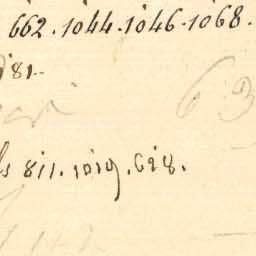 662. 1044. 1046. 1068.
81..
63
811. 1019. 628.